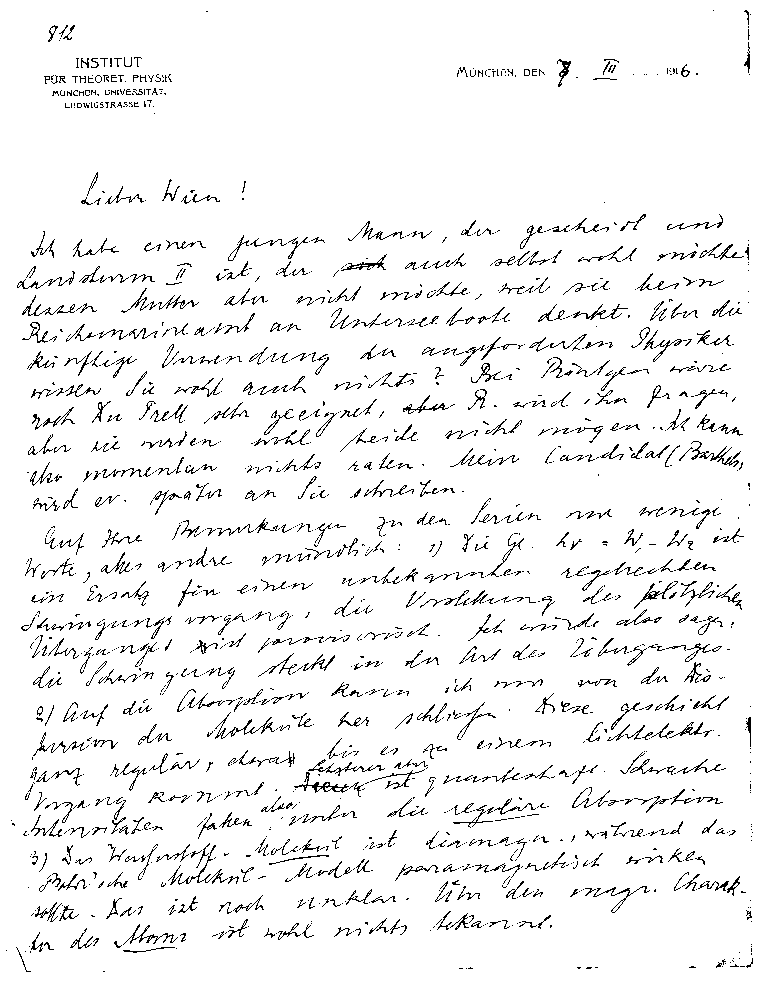 812
INSTITUT
FÜR THEORET. PHYSIK
MÜNCHEN, UNIVERSITÄT,
LUDWIGSTRASSE 17.
MÜNCHEN, DEN 7. III 1916.
Lieber Wien!
Ich habe einen jungen Mann, der gescheidt und
Landsturm II ist, der sich auch selbst wohl möchte
dessen Mutter aber nicht möchte, weil sie beim
Reichsmarineamt an Unterseeboote denkt. Über die
künftige Verwendung der angeforderten Physiker
wissen Sie wohl auch nichts? Bei Röntgen wäre
noch Dr sehr geeignet, aber R. wird ihn fragen,
aber sie werden wohl beide nicht mögen. Ich kann
also momentan nichts raten. Mein Candidat (
wird ev. später an Sie schreiben.
Auf Ihre Bemerkungen zu den Serien nur wenige
Worte, alles andre mündlich: 1) Die Gl. hν = W₁ - W₂ ist
ein Ersatz für einen unbekannten regelrechten
Schwingungsvorgang, die Vorstellung des plötzlichen
Überganges ist provisorisch. Ich würde also sagen,
die Schwingung steckt in der Art des Überganges.
2) Auf die Absorption kann ich nur von der Dis-
persion der Moleküle her schliessen. Diese geschieht
ganz regulär, bis es zu einem lichtelektr.
Vorgang kommt. Letzterer aber ist quantenhaft. Schwache
Intensitäten fallen also unter die reguläre Absorption
3) Das Wasserstoff-Molekül ist diamagn., während das
Bohr'sche Molekül-Modell paramagnetisch wirken
sollte. Das ist noch unklar. Über den magn. Charak-
ter des Atoms ist wohl nichts bekannt.